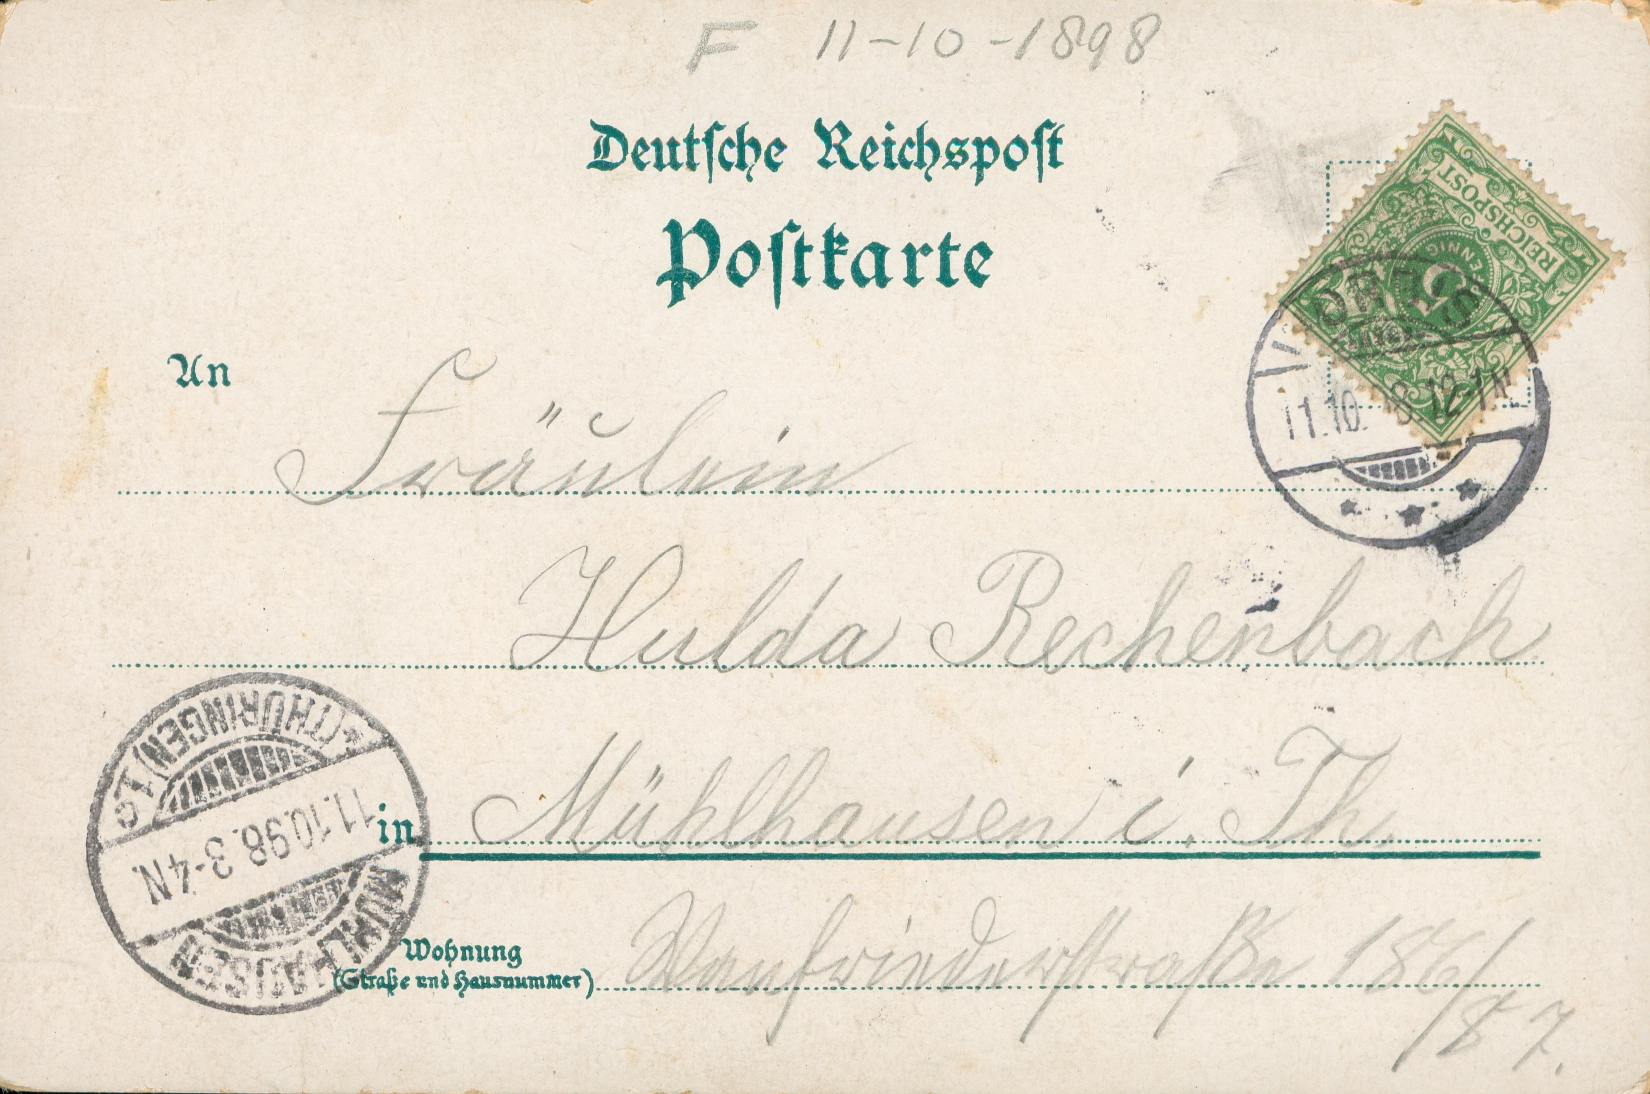 F 11-10-1898
Deutsche Reichspost
Postkarte
REICHSPOST
5
PFENNIG
11.10. 98 12-1N
An
Fräulein
Hulda Rechenbach
in Mühlhausen i. Th.
MÜHLHAUSEN
11.10.98.3-4N.
(THÜRINGEN) 1 c
Wohnung
(Straße und Hausnummer) Wanfriederstraße 186/
87.